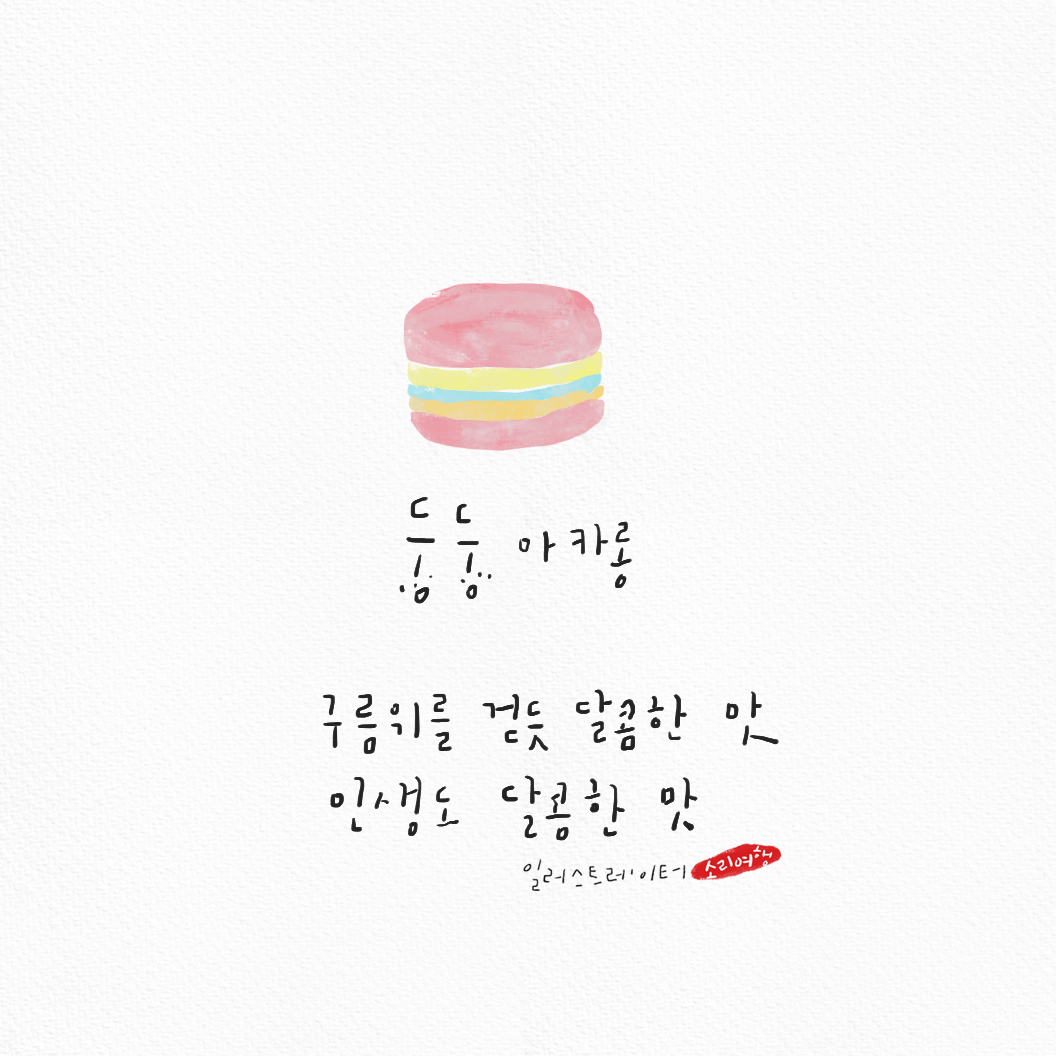 둥둥 마카롱
구름위를 걷듯 달콤한 맛
인생도 달콤한 맛
일러스트레이터 소리여행